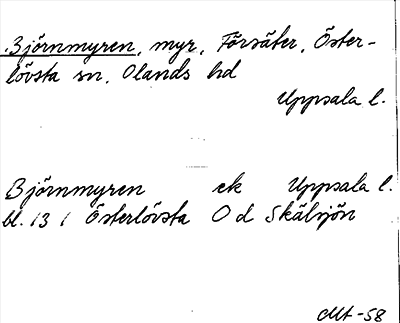 Björnmyren, myr, Försäter, Öster-
lövsta sn, Olands hd
Uppsala l.
Björnmyren ek Uppsala l.
bl. 13 I Österlövsta O d Skälsjön
Mt -58